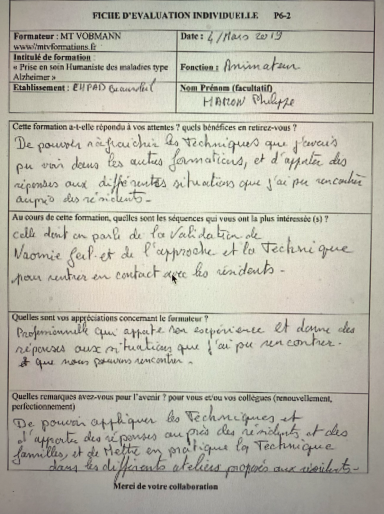 FICHE D'EVALUATION INDIVIDUELLE P6-2
Formateur : MT VOBMANN
www//mtvformations.fr
Date : 4/Mars 2019
Intitulé de formation
« Prise en soin Humaniste des maladies type
Alzheimer »
Fonction : Animateur
Etablissement : EHPAD
Nom Prénom (facultatif)
Philippe
Cette formation a-t-elle répondu à vos attentes ? quels bénéfices en retirez-vous ?
De pouvoir rafraichir les Techniques que j'avais
pu voir dans les autres formations, et d'apporter des
réponses aux différentes situations que j'ai pu rencontrer
auprès des résidents.
Au cours de cette formation, quelles sont les séquences qui vous ont la plus intéressée (s) ?
celle dont on parle de la Validation de
Naomie feil et de l'approche et la Technique
pour rentrer en contact avec les résidents.
Quelles sont vos appréciations concernant le formateur ?
Professionnelle qui apporte son expérience et donne des
réponses aux situations que j'ai pu rencontrer.
et que nous pouvons rencontrer.
Quelles remarques avez-vous pour l'avenir ? pour vous et/ou vos collègues (renouvellement,
perfectionnement)
De pouvoir appliquer les Techniques et
d'apporter des réponses auprès des résidents et des
familles, et de Mettre en pratique la Technique
dans les différents ateliers proposés aux résidents.
Merci de votre collaboration